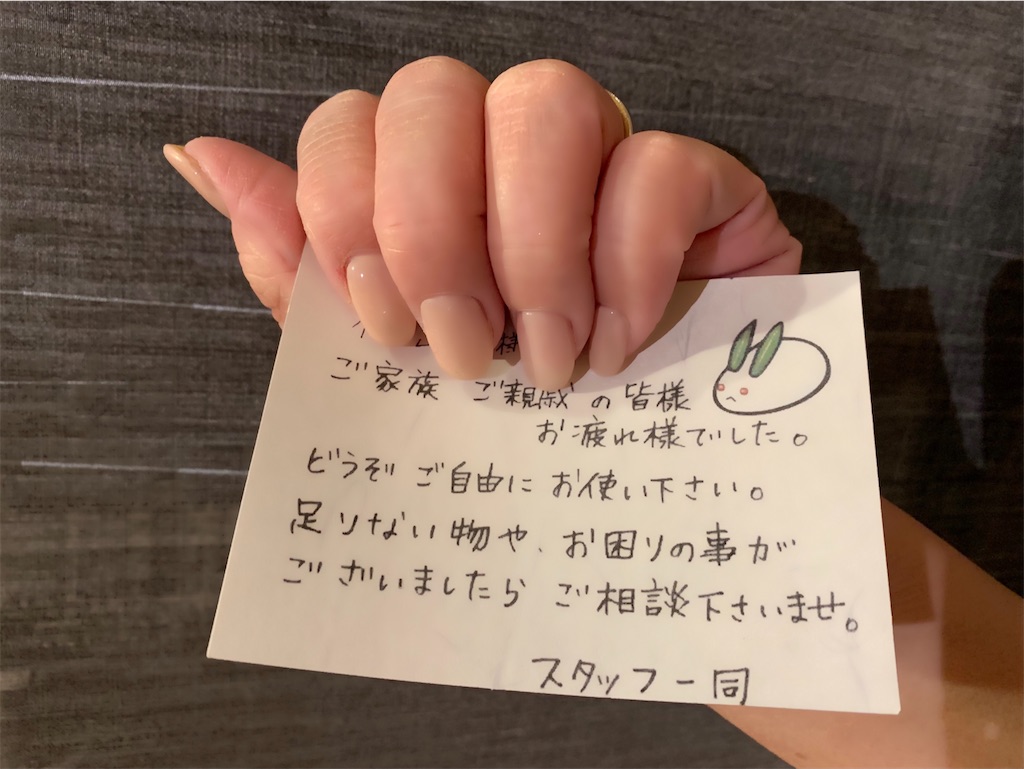 様
ご家族 ご親戚の皆様
お疲れ様でした。
どうぞご自由にお使い下さい。
足りない物や、お困りの事が
ございましたらご相談下さいませ。
スタッフ一同